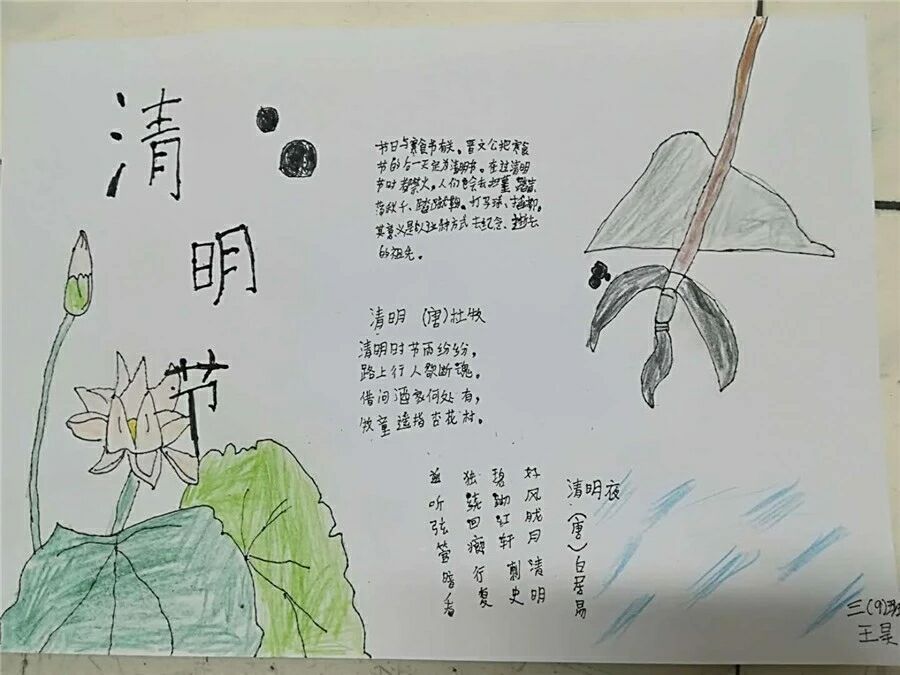 清
明
节
节日与寒食节有关。晋文公把寒食
节的后一天定为清明节。在过清明
节时 禁火。人们 会去扫墓、踏青
荡秋千、 。打马球、插柳。
其意义是以这种方式去纪念、逝去
的祖先。
清明 (唐)杜牧
清明时节雨纷纷,
路上行人欲断魂。
借问酒家何处有,
牧童遥指杏花村。
清明夜(唐)白居易
好风胧月清明
碧 红轩刺史
独绕回 行复
听弦管暗看
三(9)班
王